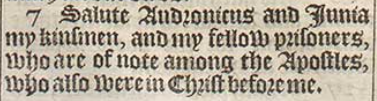 7 Salute Andronicus and Junia
my kinsmen, and my fellow prisoners,
who are of note among the Apostles,
who also were in Christ before me.